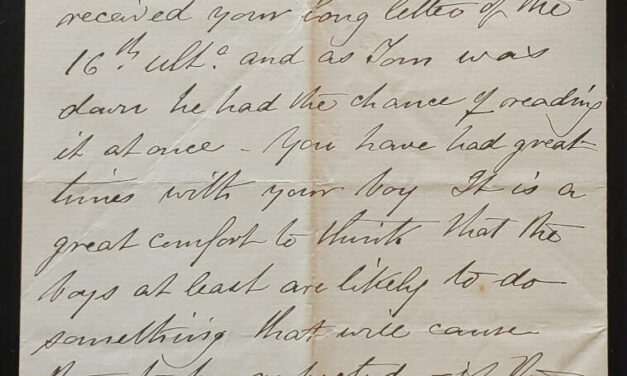 received your long letter of the
16th ulto. and as Tom was
down he had the chance of reading
it at once - You have had great
times with your boy It is a
great comfort to think that the
boys at least are likely to do
something that will cause